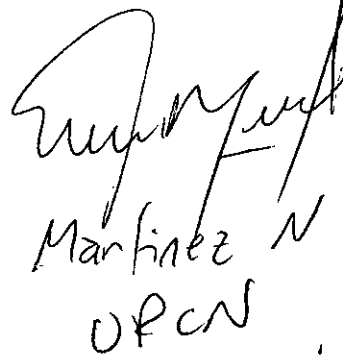 Martinez N
UPCN